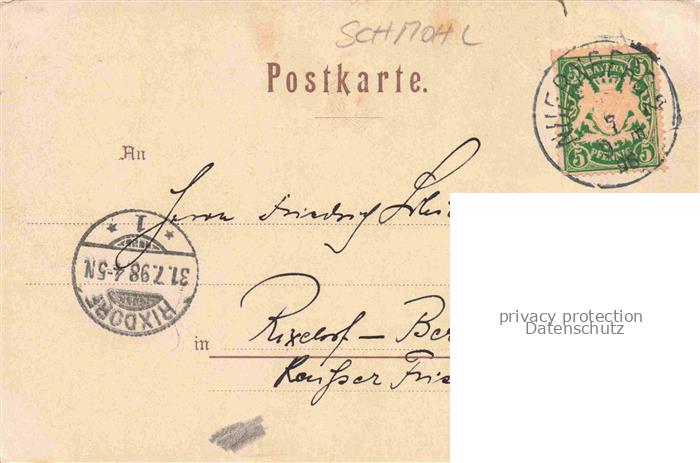 SCHMOHL
Postkarte.
BAYERN
5 5
PFENNIG
5 5
An
Herrn Friedrich
1
31.7.98.4-5N
RIXDORF
in Rixdorf – Ber
Kaiser Frie
privacy protection
Datenschutz